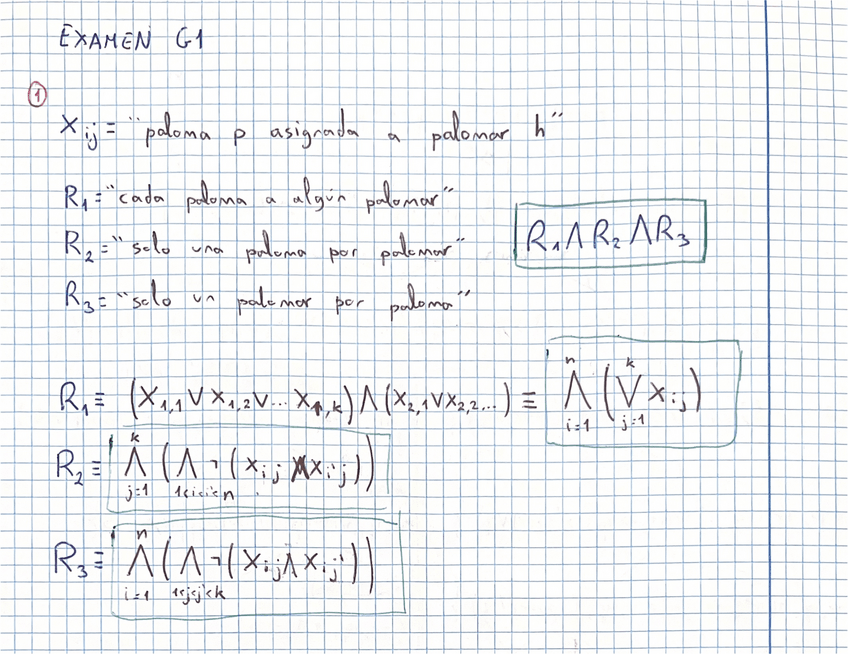 EXAMEN G1
1
X_ij = "paloma p asignada a palomar h"
R_1 = "cada paloma a algún palomar"
R_2 = "solo una paloma por palomar"
R_1 ∧ R_2 ∧ R_3
R_3 = "solo un palomar por paloma"
R_1 ≡ (X_1,1 ∨ X_1,2 ∨ ... X_1,k) ∧ (X_2,1 ∨ X_2,2 ...) ≡ ⋀_{i=1}^{n} (⋁_{j=1}^{k} X_ij)
R_2 ≡ ⋀_{j=1}^{k} (⋀_{1≤i<i'≤n} ¬(X_ij ∧ X_i'j))
R_3 ≡ ⋀_{i=1}^{n} (⋀_{1≤j<j'≤k} ¬(X_ij ∧ X_ij'))